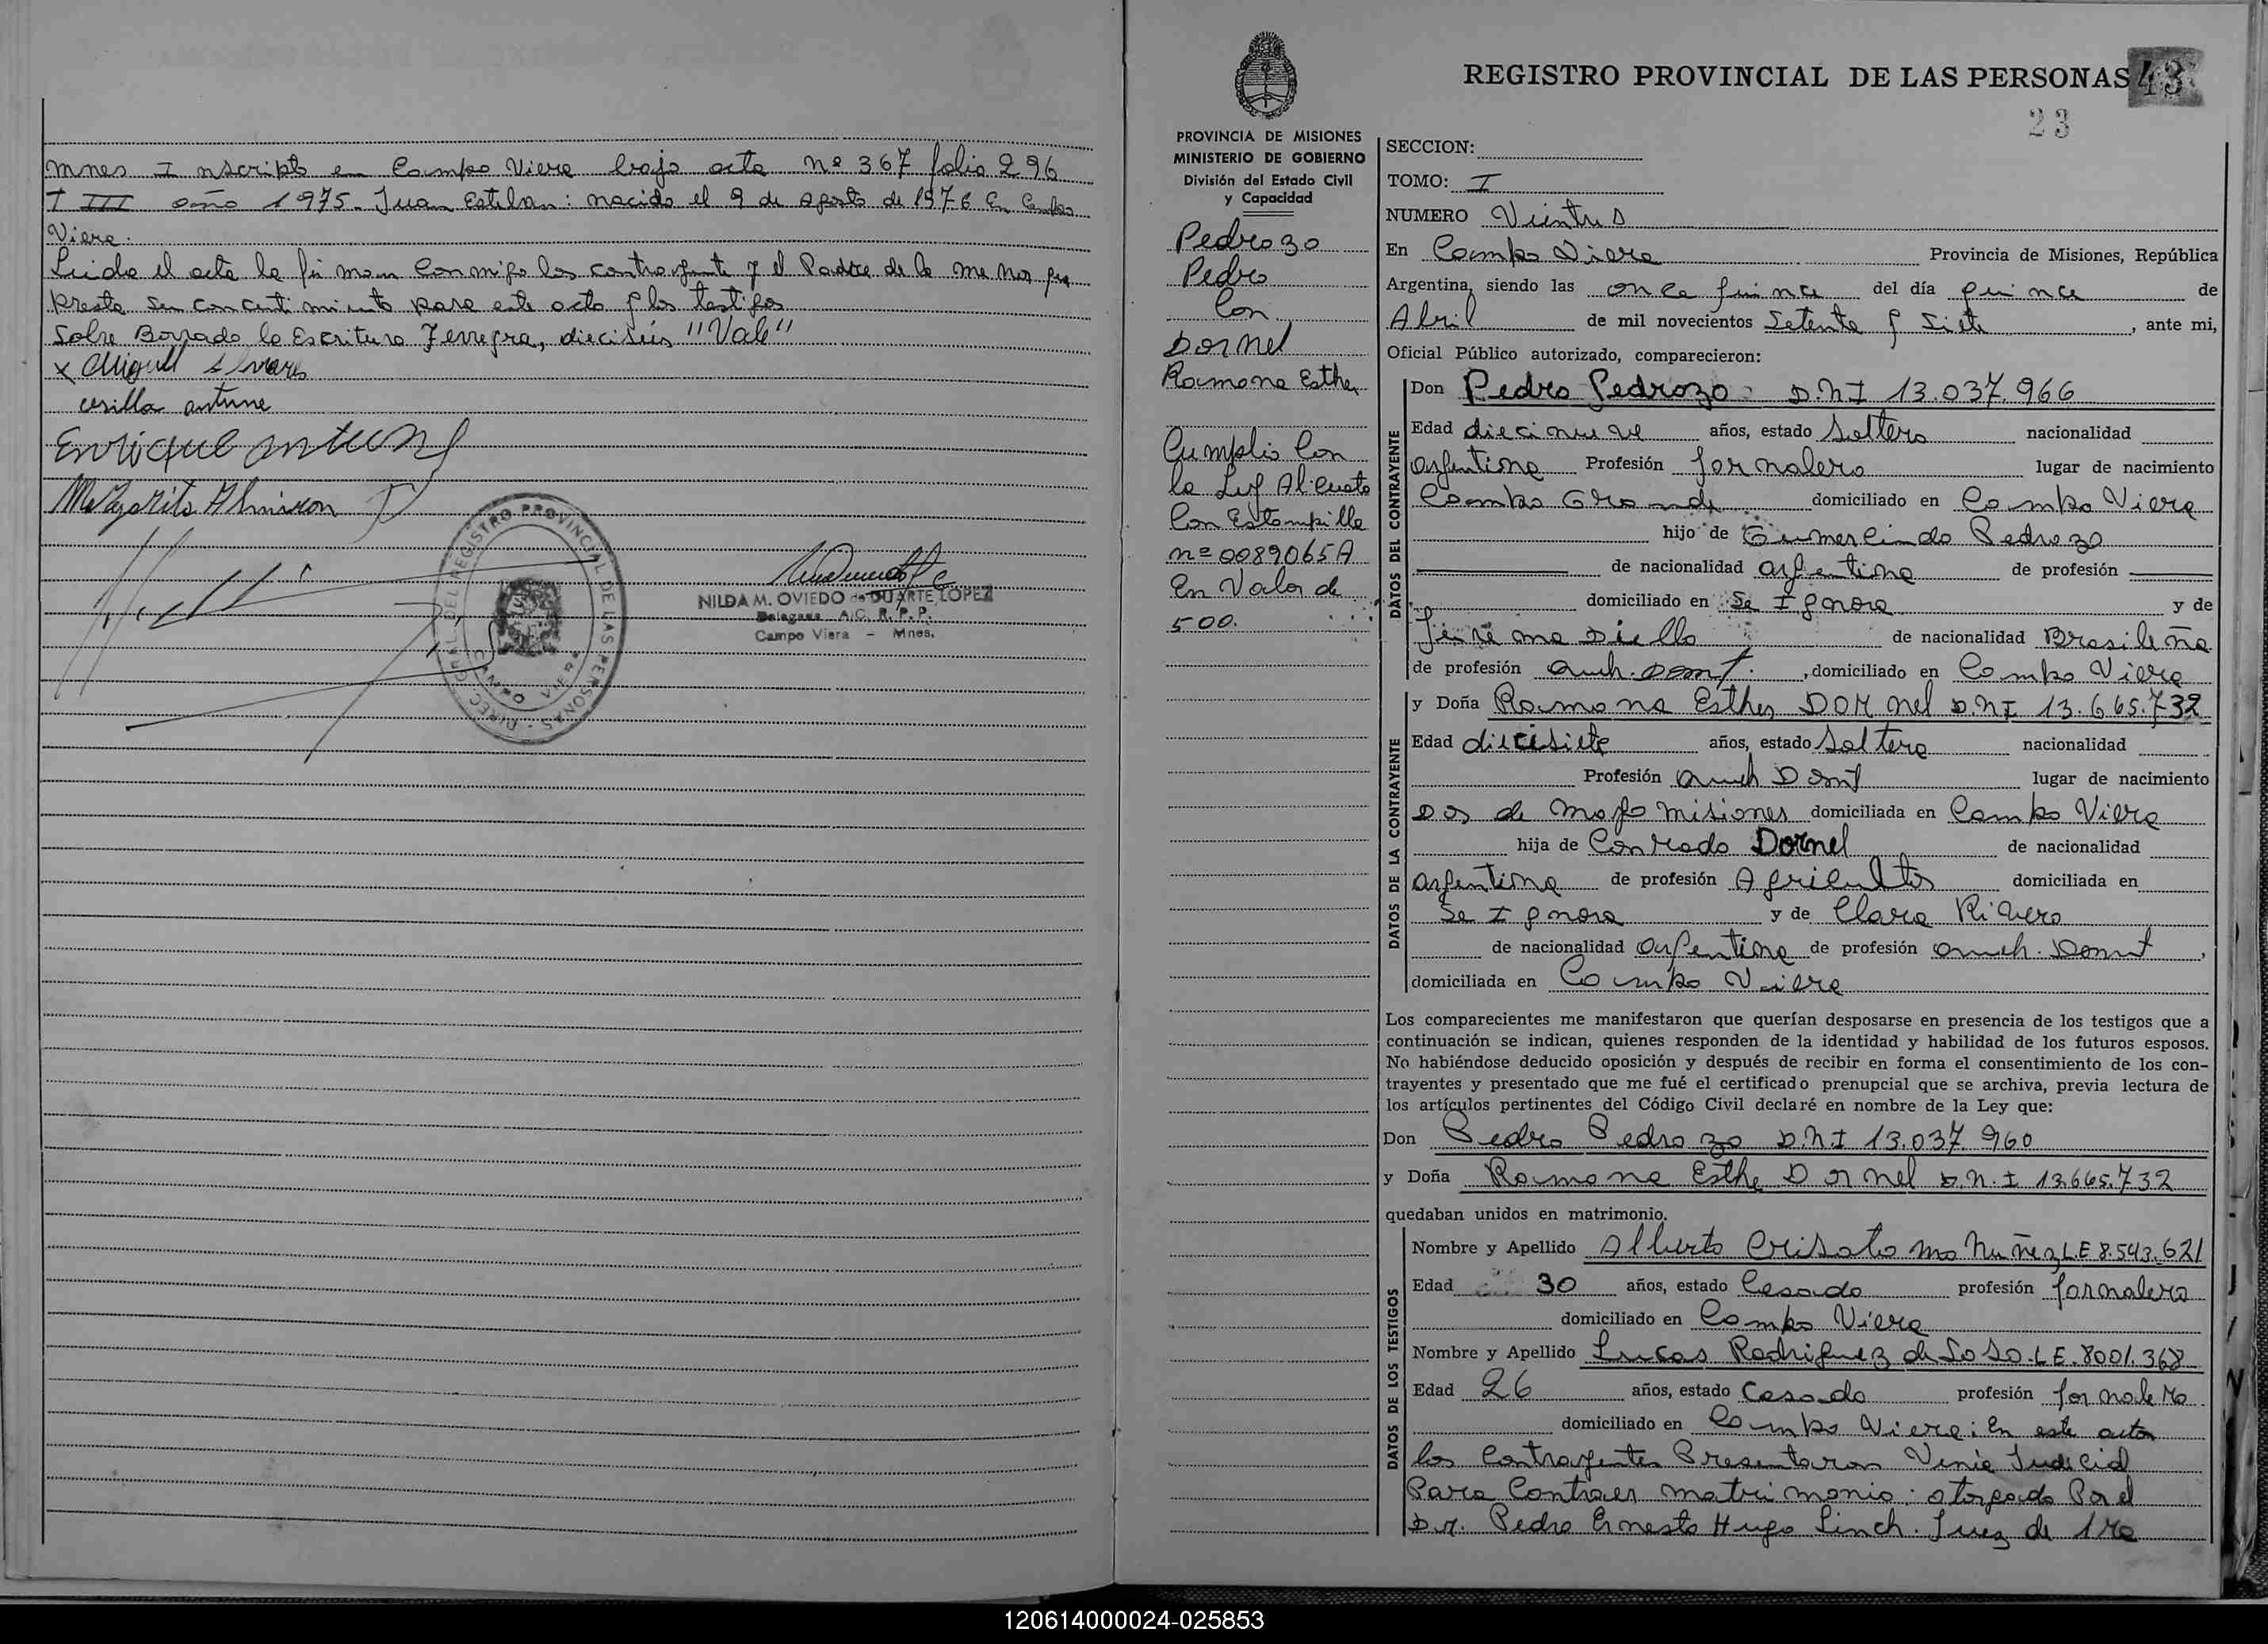 mnes Inscripto en Campo Viera bajo acta nº 367 folio 296
T III año 1975. Juan Estilan: nacido el 9 de Agosto de 1976 En Campo
Viera.
Leida el acta la firman conmigo los contrayente y el Padre de la menor que
presta su concentimiento para este acto y los testigos
Sobre Borrado la Escritura Yerregra, dieciséis "Vale"
x Miguel
antune
Enrique antune
Margarita
DIREC. GRAL. DEL REGISTRO PROVINCIAL DE LAS PERSONAS
CAMPO VIERA
NILDA M. OVIEDO de DUARTE LOPEZ
Delegada A/C. R. P. P.
Campo Viera - Mnes.
REGISTRO PROVINCIAL DE LAS PERSONAS 43
23
PROVINCIA DE MISIONES
MINISTERIO DE GOBIERNO
División del Estado Civil
y Capacidad
Pedrozo
Pedro
Con
Dornel
Ramona Esther
Cumplio Con
la Ley Al cuato
Con Estampilla
nº 0089065A
En Valor de
500.
SECCION:
TOMO: I
NUMERO Vientres
En Campo Viera Provincia de Misiones, República
Argentina, siendo las once quince del día quince de
Abril de mil novecientos Setenta y Siete, ante mi,
Oficial Público autorizado, comparecieron:
DATOS DEL CONTRAYENTE
Don Pedro Pedrozo - D.N.I 13.037.966
Edad diecinueve años, estado Soltero nacionalidad
argentina Profesión jornalero lugar de nacimiento
Campo Grande domiciliado en Campo Viera
hijo de Gumercindo Pedrozo
de nacionalidad argentina de profesión
domiciliado en Se Ignora y de
de nacionalidad Brasileña
de profesión amh. Domt., domiciliado en Campo Viera
DATOS DE LA CONTRAYENTE
y Doña Ramona Esther DORnel D.N.I 13.665.732
Edad diecisiete años, estado Soltera nacionalidad
Profesión amh Domt lugar de nacimiento
Dos de Mayo Misiones domiciliada en Campo Viera
hija de Conrado Dornel de nacionalidad
argentina de profesión Agricultor domiciliada en
Se Ignora y de Clara Rivero
de nacionalidad argentina de profesión amh. Domt,
domiciliada en Campo Viera
Los comparecientes me manifestaron que querían desposarse en presencia de los testigos que a
continuación se indican, quienes responden de la identidad y habilidad de los futuros esposos.
No habiéndose deducido oposición y después de recibir en forma el consentimiento de los con-
trayentes y presentado que me fué el certificado prenupcial que se archiva, previa lectura de
los artículos pertinentes del Código Civil declaré en nombre de la Ley que:
Don Pedro Pedrozo D.N.I 13.037.960
y Doña Ramona Esthe Dornel D.N.I 13.665.732
quedaban unidos en matrimonio.
DATOS DE LOS TESTIGOS
Nombre y Apellido Alberto Crisolomo Nuñez L.E 8.543.621
Edad 30 años, estado Casado profesión jornalero
domiciliado en Campo Viera
Nombre y Apellido Lucas Rodriguez de Soso. L E. 8001.368
Edad 26 años, estado Casado profesión jornalero
domiciliado en Campo Viera: En este acton
los Contrayentes Presentaron Venia Judicial
Para Contraer matrimonio: otorgado Por el
Dr. Pedro Ernesto Hugo Linch. Juez de 1ra
120614000024-025853